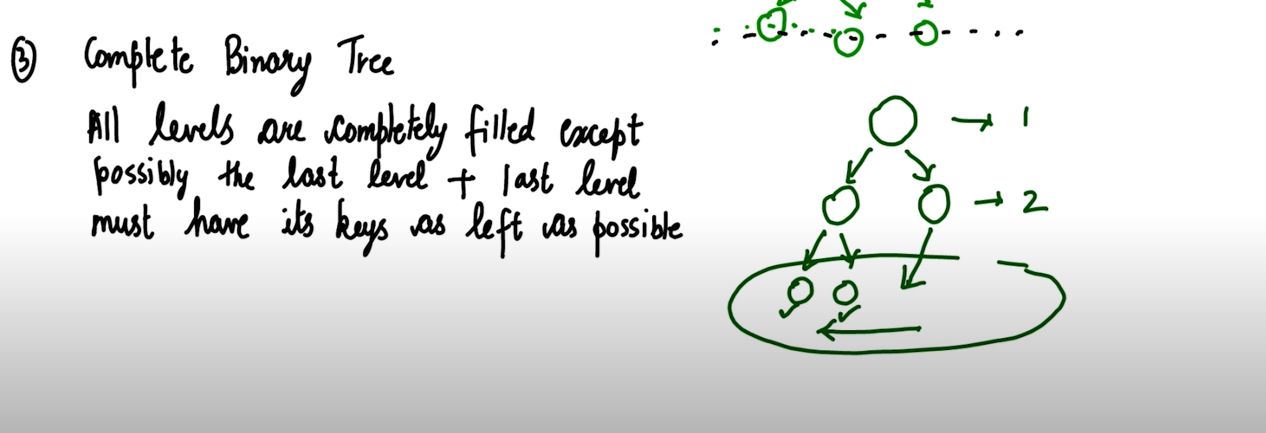 ③ Complete Binary Tree
All levels are completely filled except
possibly the last level + last level
must have its keys as left as possible
→ 1
→ 2